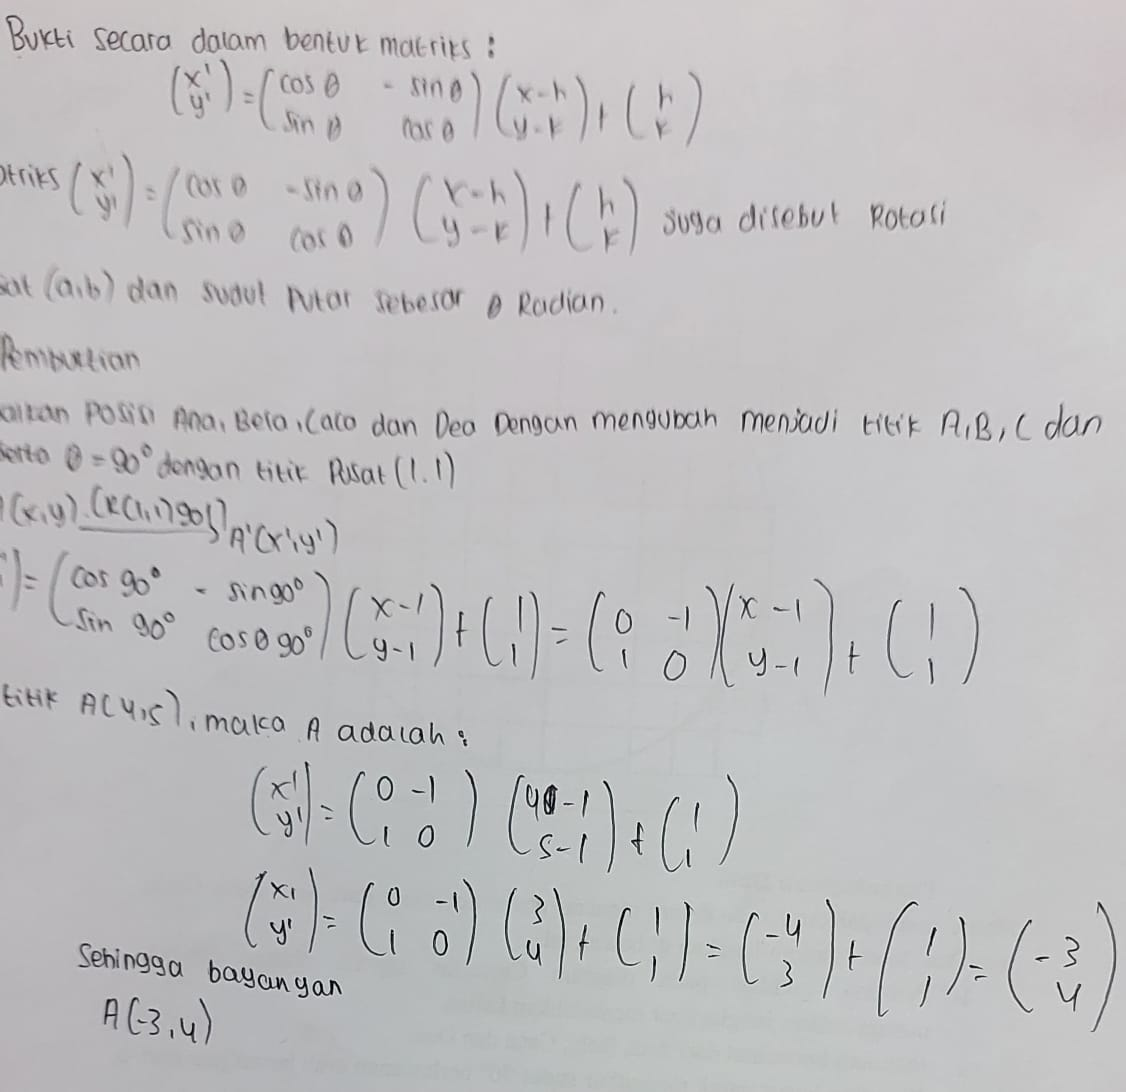 Bukti secara dalam bentuk matriks :
(x' y') = (cos θ - sin θ sin θ cos θ) (x-h y-k) + (h k)
atriks (x' y') = (cos θ -sin θ sin θ cos θ) (x-h y-k) + (h k) Juga disebut Rotasi
sat (a,b) dan sudut Putar sebesar θ Radian.
Pembuktian
aikan Posisi Ana, Beta, Caca dan Dea Dengan mengubah menjadi titik A, B, C dan
serta θ = 90° dengan titik Pusat (1.1)
(x,y) [R(1,1) 90°] A'(x',y')
) = (cos 90° - sin 90° sin 90° cos θ 90°) (x-1 y-1) + (1 1) = (0 -1 1 0) (x-1 y-1) + (1 1)
titik A(4,5), maka A adalah :
(x' y') = (0 -1 1 0) (4-1 5-1) + (1 1)
(x' y') = (0 -1 1 0) (3 4) + (1 1) = (-4 3) + (1 1) = (-3 4)
Sehingga bayangan
A(-3,4)